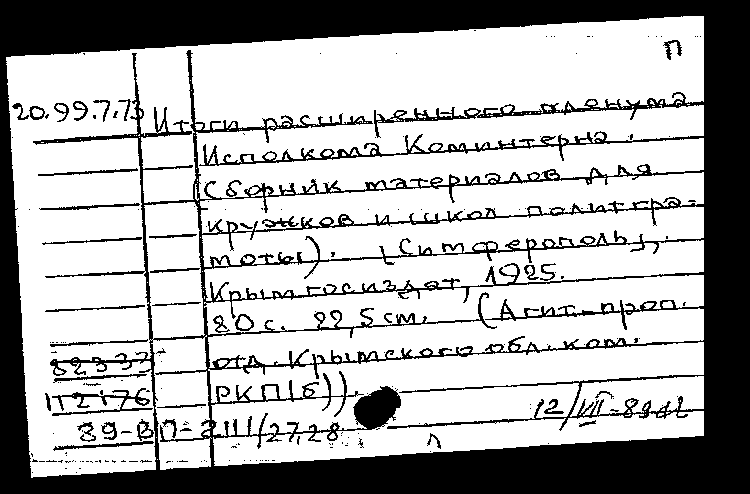 П
20.99.7.73 Итоги расширенного пленума
Исполкома Коминтерна.
(Сборник материалов для
кружков и школ политгра-
моты). [Симферополь],
Крымгосиздат, 1925.
80 с. 22,5 см. (Агит-проп.
82333 отд. Крымского обл. ком.
112176 РКП(б)).
89-8 П-2111/2728
12/VIII-89